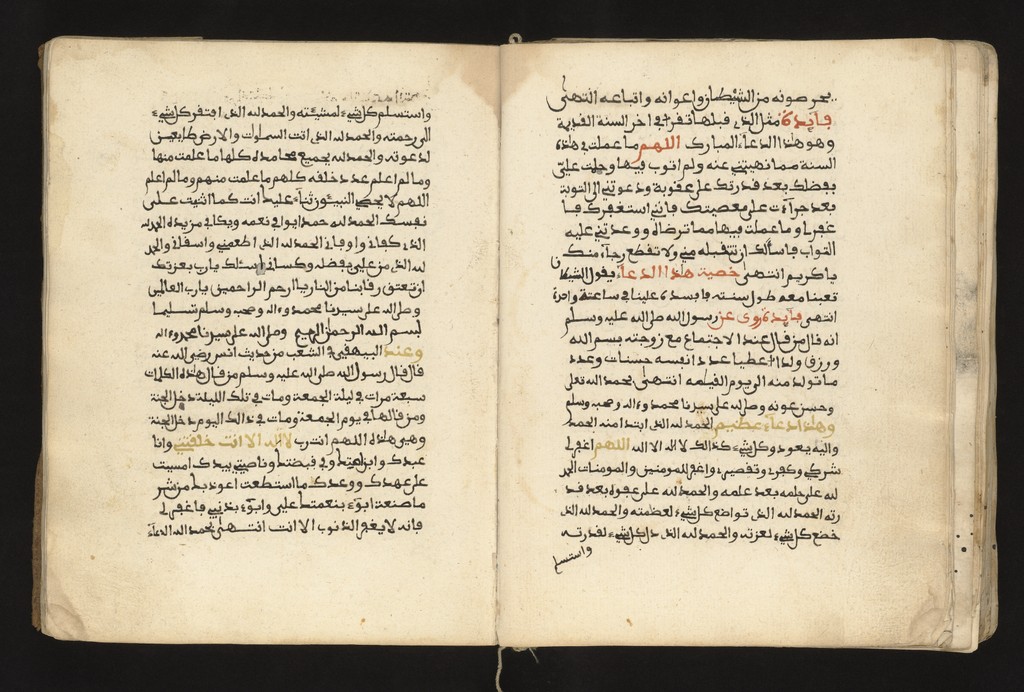 يحرصونه من الشيطان واعوانه واتباعه انتهى
فايدة مثل الذي قبلها تقرا في اخر السنة
وهو هذا الدعاء المبارك اللهم ما عملت في هذه
السنة مما نهيتني عنه ولم اتوب فيها وحلت علي
بفضلك بعد قدرتك على عقوبة ودعوتني الى التوبة
بعد جراءت على معصيتك فاني استغفرك فا
غفر لي وما عملت فيها مما ترضاه ووعدتني عليه
الثواب فاسألك ان تتقبله مني ولا تقطع رجاء منك
يا كريم انتهى خصية هذا الدعاء يقول الشيطان
تعبنا معه طول سنته فافسده علينا في ساعة واحدة
انتهى فايدة روي عن رسول الله صلى الله عليه وسلم
انه قال من قال عند الاجتماع مع زوجته بسم الله
ورزق ولدا اعطي عدد انفسه حسنات وعدد
ما تولد منه الى يوم القيامة انتهى بحمد الله تعلى
وحسن عونه وصلى الله على سيدنا محمد وءاله وصحبه وسلم
وهذا دعاء عظيم الحمد لله الذي ابتدا منه الحمد
واليه يعود وكل شيء كذالك لا اله الا الله اللهم اغفر لي
شركي وكفري وتقصيري واغفر للمومنين والمومنات الحمد
لله على حلمه بعد علمه والحمد لله على عفوه بعد قد
رته الحمد لله الذي تواضع كل شيء لعظمته والحمد لله الذي
خضع كل شيء لعزته والحمد لله الذي ذل كل شيء لقدرته
واستسلم
واستسلم كل شيء لمشيئته والحمد لله الذي افتقر كل شيء
الى رحمته والحمد لله الذي اتت السماوات والارض طايعين
لدعوته والحمد لله بجميع محامده كلها ما علمت منها
وما لم اعلم عدد خلقه كلهم ما علمت منهم وما لم اعلم
اللهم لا يحصي النبيئون ثناء عليك انت كما اثنيت على
نفسك الحمد لله حمدا يوافي نعمه ويكافي مزيده الحمد لله
الذي كفاني واوفاني الحمد لله الذي اطعمني واسقاني والحمد
لله الذي من علي بفضله وكساني اسئلك يا رب بعزتك
ان تعتق رقابنا من النار يا ارحم الراحمين يا رب العالمين
وصلى الله على سيدنا محمد وءاله وصحبه وسلم تسليما
بسم الله الرحمن الرحيم وصلى الله على سيدنا محمد وءاله
وعند البيهقي في الشعب من حديث انس رضي الله عنه
قال قال رسول الله صلى الله عليه وسلم من قال هذه الكلمات
سبعة مرات في ليلة الجمعة ومات في تلك الليلة دخل الجنة
ومن قالها في يوم الجمعة ومات في ذالك اليوم دخل الجنة
وهي هذه اللهم انت رب لا اله الا انت خلقتني وانا
عبدك وابن امتك وفي قبضتك وناصيتي بيدك امسيت
على عهدك ووعدك ما استطعت اعوذ بك من شر
ما صنعت ابوء بنعمتك علي وابوء بذنبي فاغفر لي
فانه لا يغفر الذنوب الا انت انتهى بحمد الله الدعاء